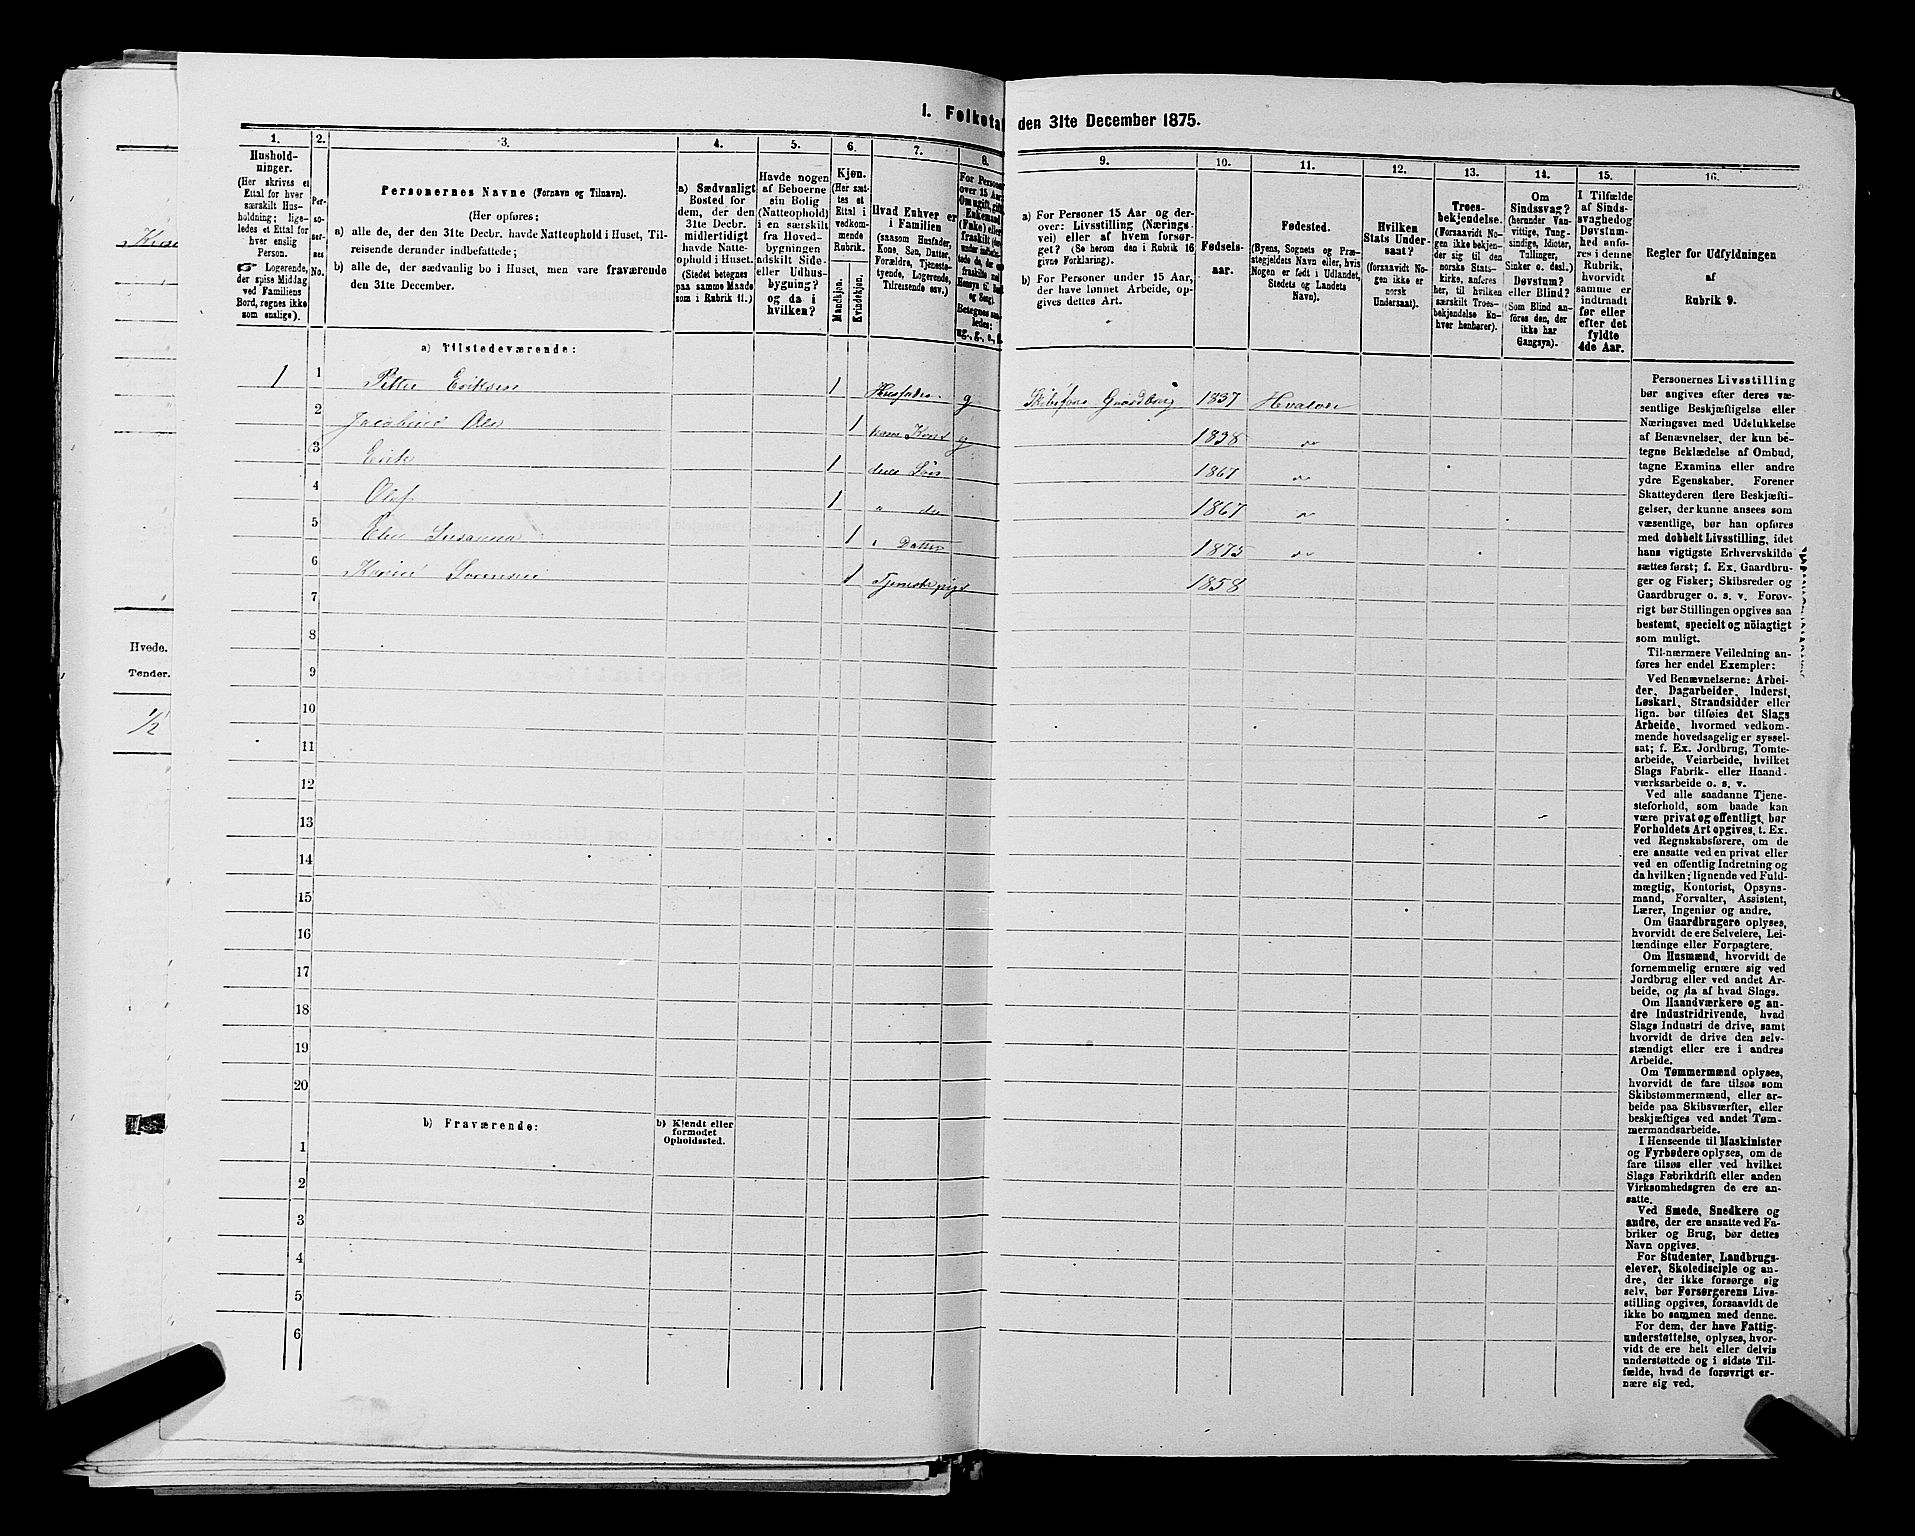 I. Folketa
den 31te December 1875.
1.
Hushold-
ninger.
(Her skrives et
Ettal for hver
særskilt Hus-
holdning; lige-
ledes et Ettal for
hver enslig
Person.
Logerende,
der spise Middag
ved Familiens
Bord, regnes ikke
som enslige).
2.
Per-
so-
ner-
nes
No.
3.
Personernes Navne (Fornavn og Tilnavn).
(Her opføres:
a) alle de, der den 31te Decbr. havde Natteophold i Huset, Til-
reisende derunder indbefattede;
b) alle de, der sædvanlig bo i Huset, men vare fraværende
den 31te December.
4.
a) Sædvanligt
Bosted for
dem, der den
31te Decbr.
midlertidigt
havde Natte-
ophold i Huset.
(Stedet betegnes
paa samme Maade
som i Rubrik 11.)
5.
Havde nogen
af Beboerne
sin Bolig
(Natteophold)
i en særskilt
fra Hoved-
bygningen
adskilt Side-
eller Udhus-
bygning?
og da i
hvilken?
6.
Kjøn.
(Her sæt-
tes et
Ettal i
vedkom-
mende
Rubrik.
Mandkjøn.
Kvindekjøn.
7.
Hvad Enhver er
i Familien
(saasom Husfader,
Kone, Søn, Datter,
Forældre, Tjeneste-
tyende, Logerende,
Tilreisende osv.)
8.
For Persone
over 15 Aar
Om ugift, gift,
Enkemand
(Enke) eller
fraskilt
Betegnes saa-
ledes:
ug., g., e., f.
9.
a) For Personer 15 Aar og der-
over: Livsstilling (Nærings-
vei) eller af hvem forsør-
get? (Se herom den i Rubrik 16
givne Forklaring).
b) For Personer under 15 Aar,
der have lønnet Arbeide, op-
gives dettes Art.
10.
Fødsels-
aar.
11.
Fødested.
(Byens, Sognets og Præ-
stegjeldets Navn eller, hvis
Nogen er født i Udlandet,
Stedets og Landets
Navn).
12.
Hvilken
Stats Under-
saat?
(forsaavidt No-
gen ikke er
norsk
Undersaat).
13.
Troes-
bekjendelse.
(Forsaavidt No-
gen ikke bekjen-
der sig til den
norske Stats-
kirke, anføres
her, til hvilken
særskilt Troes-
bekjendelse En-
hver henhører).
14.
Om
Sindssvag?
(herunder Van-
vittige, Tung-
sindige, Idioter,
Tullinger,
Sinker o. desl.)
Døvstum?
eller Blind?
(Som Blind an-
føres den, der
ikke har
Gangsyn).
15.
I Tilfælde
af Sinds-
svaghedog
Døvstum-
hed anfø-
res i denne
Rubrik,
hvorvidt
samme er
indtraadt
før eller
efter det
fyldte
4de Aar.
16.
Regler for Udfyldningen
af
Rubrik 9.
a) Tilstedeværende:
1 1 Petter Eriksen 1 Husfader g Gaardbrug 1837 Hvaløer
2 Jacobine Ols 1 hans Kone g 1838 "
3 Erik 1 deres Søn 1867 "
4 Olaf 1 " do 1867 "
5 Susanna 1 " Datter 1875 "
6 Sørensen 1 Tjenestepige 1858
7
8
9
10
11
12
13
14
15
16
17
18
19
20
b) Fraværende:
b) Kjendt eller
formodet
Opholdssted.
1
2
3
4
5
6
Personernes Livsstilling
bør angives efter deres væ-
sentlige Beskjæftigelse eller
Næringsvei med Udelukkelse
af Benævnelser, der kun be-
tegne Beklædelse af Ombud,
tagne Examina eller andre
ydre Egenskaber. Forener
Skatteyderen flere Beskjæfti-
gelser, der kunne ansees som
væsentlige, bør han opføres
med dobbelt Livsstilling, idet
hans vigtigste Erhvervskilde
sættes først; f. Ex. Gaardbru-
ger og Fisker; Skibsreder og
Gaardbruger o. s. v. Forøv-
rigt bør Stillingen opgives saa
bestemt, specielt og nöiagtigt
som muligt.
Til nærmere Veiledning an-
føres her endel Exempler:
Ved Benævnelserne: Arbei-
der, Dagarbeider, Inderst,
Løskarl, Strandsidder eller
lign. bør tilføies det Slags
Arbeide, hvormed vedkom-
mende hovedsagelig er syssel-
sat; f. Ex. Jordbrug, Tomte-
arbeide, Veiarbeide, hvilket
Slags Fabrik- eller Haand-
værksarbeide o. s. v.
Ved alle saadanne Tjene-
steforhold, som baade kan
være privat og offentligt, bør
Forholdets Art opgives, t. Ex.
ved Regnskabsførere, om de
ere ansatte ved en privat eller
ved en offentlig Indretning og
da hvilken; lignende ved Fuld-
mægtig, Kontorist, Opsyns-
mand, Forvalter, Assistent,
Lærer, Ingeniør og andre.
Om Gaardbrugere oplyses,
hvorvidt de ere Selveiere, Lei-
lændinge eller Forpagtere.
Om Husmænd, hvorvidt de
fornemmelig ernære sig ved
Jordbrug eller ved andet Ar-
beide, og da af hvad Slags.
Om Haandværkere og an-
dre Industridrivende, hvad
Slags Industri de drive, samt
hvorvidt de drive den selv-
stændigt eller ere i andres
Arbeide.
Om Tømmermænd oplyses,
hvorvidt de fare tilsøs som
Skibstømmermænd, eller ar-
beide paa Skibsværfter, eller
beskjæftiges ved andet Tøm-
mermandsarbeide.
I Henseende til Maskinister
og Fyrbødere oplyses, om de
fare tilsøs eller ved hvilket
Slags Fabrikdrift eller anden
Virksomhedsgren de ere an-
satte.
Ved Smede, Snedkere og
andre, der ere ansatte ved Fa-
briker og Brug, bør dettes
Navn opgives.
For Studenter, Landbrugs-
elever, Skoledisciple og an-
dre, der ikke forsørge sig
selv, bør Forsørgerens Livs-
stilling opgives, forsaavidt de
ikke bo sammen med denne.
For dem, der have Fattig-
understøttelse, oplyses, hvor-
vidt de ere helt eller delvis
understøttede og i sidste Til-
fælde, hvad de forøvrigt er-
nære sig ved.
Hvede.
Tender.
1/2